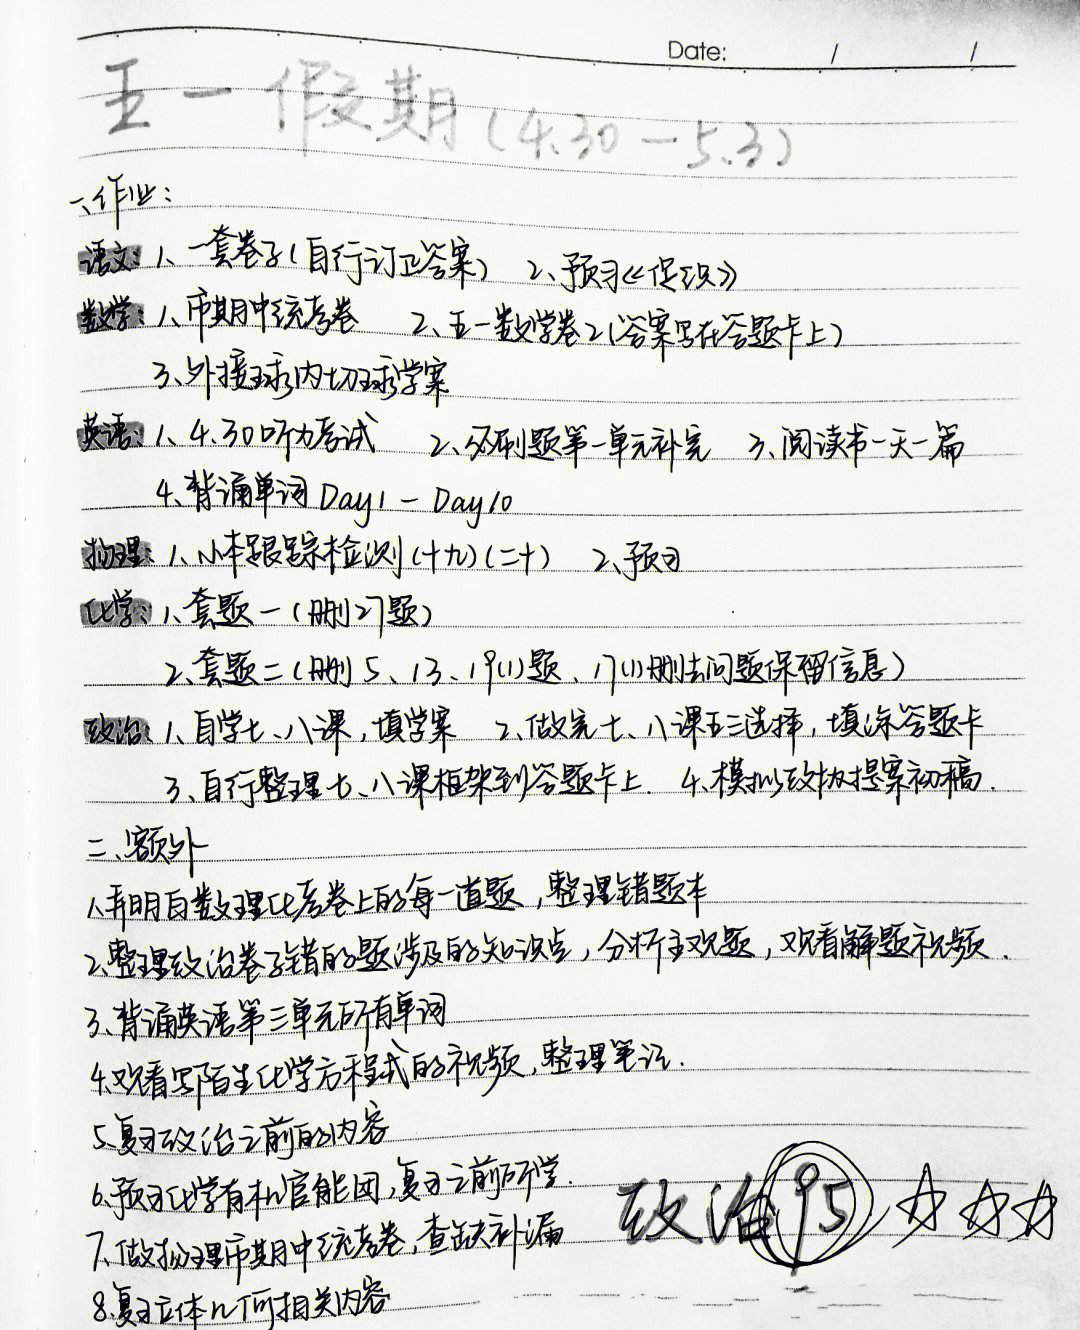 Date: / /
五一假期(4.30-5.3)
一、作业：
语文：1、一套卷子(自行订正答案) 2、预习《促织》
数学：1、市期中统考卷 2、五一数学卷2(答案写在答题卡上)
3、外接球内切球学案
英语：1、4.30听力考试 2、必刷题第一单元补完 3、阅读书一天一篇
4、背诵单词Day1-Day10
物理：1、小本跟踪检测(十九)(二十) 2、预习
化学：1、套题一(删27题)
2、套题二(删5、13、19(1)题、17(1)删去问题保留信息)
政治：1、自学七、八课，填学案 2、做完七、八课五三选择，填涂答题卡
3、自行整理七、八课框架到答题卡上. 4、模拟政协提案初稿.
二、额外
1、弄明白数理化考卷上的每一道题，整理错题本
2、整理政治卷子错的题涉及的知识点，分析主观题，观看解题视频.
3、背诵英语第三单元所有单词
4、观看写陌生化学方程式的视频，整理笔记.
5、复习政治之前的内容
6、预习化学有机官能团，复习之前所学.
7、做物理市期中统考卷，查缺补漏
政治95 ☆☆☆
8、复习立体几何相关内容